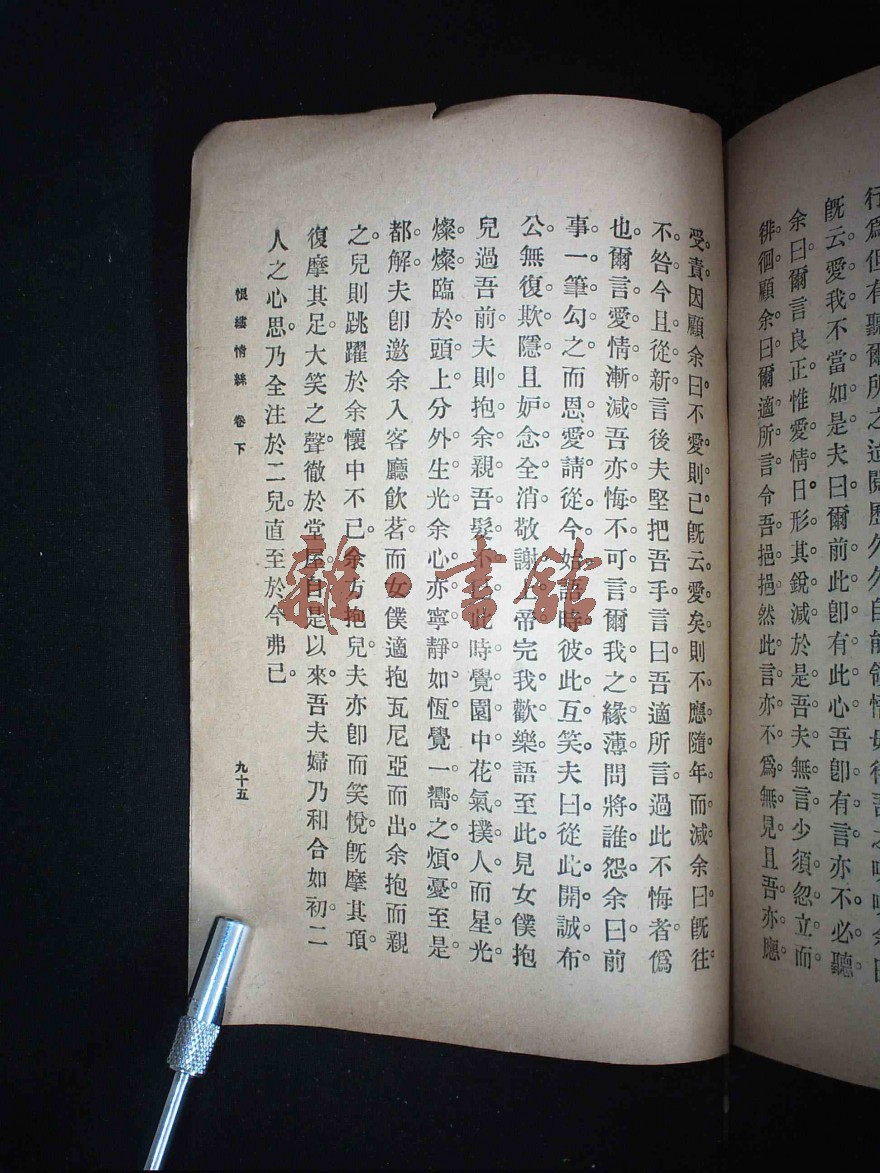 行爲但有聽爾所之迨閱歷久久自能領悟毋待吾之
旣云愛我不當如是夫曰爾前此卽有此心吾卽有言亦不必聽
余曰爾言良正惟愛情日形其銳減於是吾夫無言少須忽立而
徘徊顧余曰爾適所言令吾挹挹然此言亦不爲無見且吾亦應
受責因顧余曰不愛則已旣云愛矣則不應隨年而減余曰旣往
不咎今且從新言後夫堅把吾手言曰吾適所言過此不悔者僞
也爾言愛情漸減吾亦悔不可言爾我之緣薄問將誰怨余曰前
事一筆勾之而恩愛請從今始語時彼此互笑夫曰從此開誠布
公無復欺隱且妒念全消敬謝上帝完我歡樂語至此見女僕抱
兒過吾前夫則抱余親吾髮不已此時覺園中花氣撲人而星光
燦燦臨於頭上分外生光余心亦寧靜如恆覺一嚮之煩憂至是
都解夫卽邀余入客廳飮茗而女僕適抱瓦尼亞而出余抱而親
之兒則跳躍於余懷中不已余方抱兒夫亦卽而笑悅旣摩其頂
復摩其足大笑之聲徹於堂屋自是以來吾夫婦乃和合如初二
人之心思乃全注於二兒直至於今弗已
恨縷情絲 卷下
九十五
雜·書館